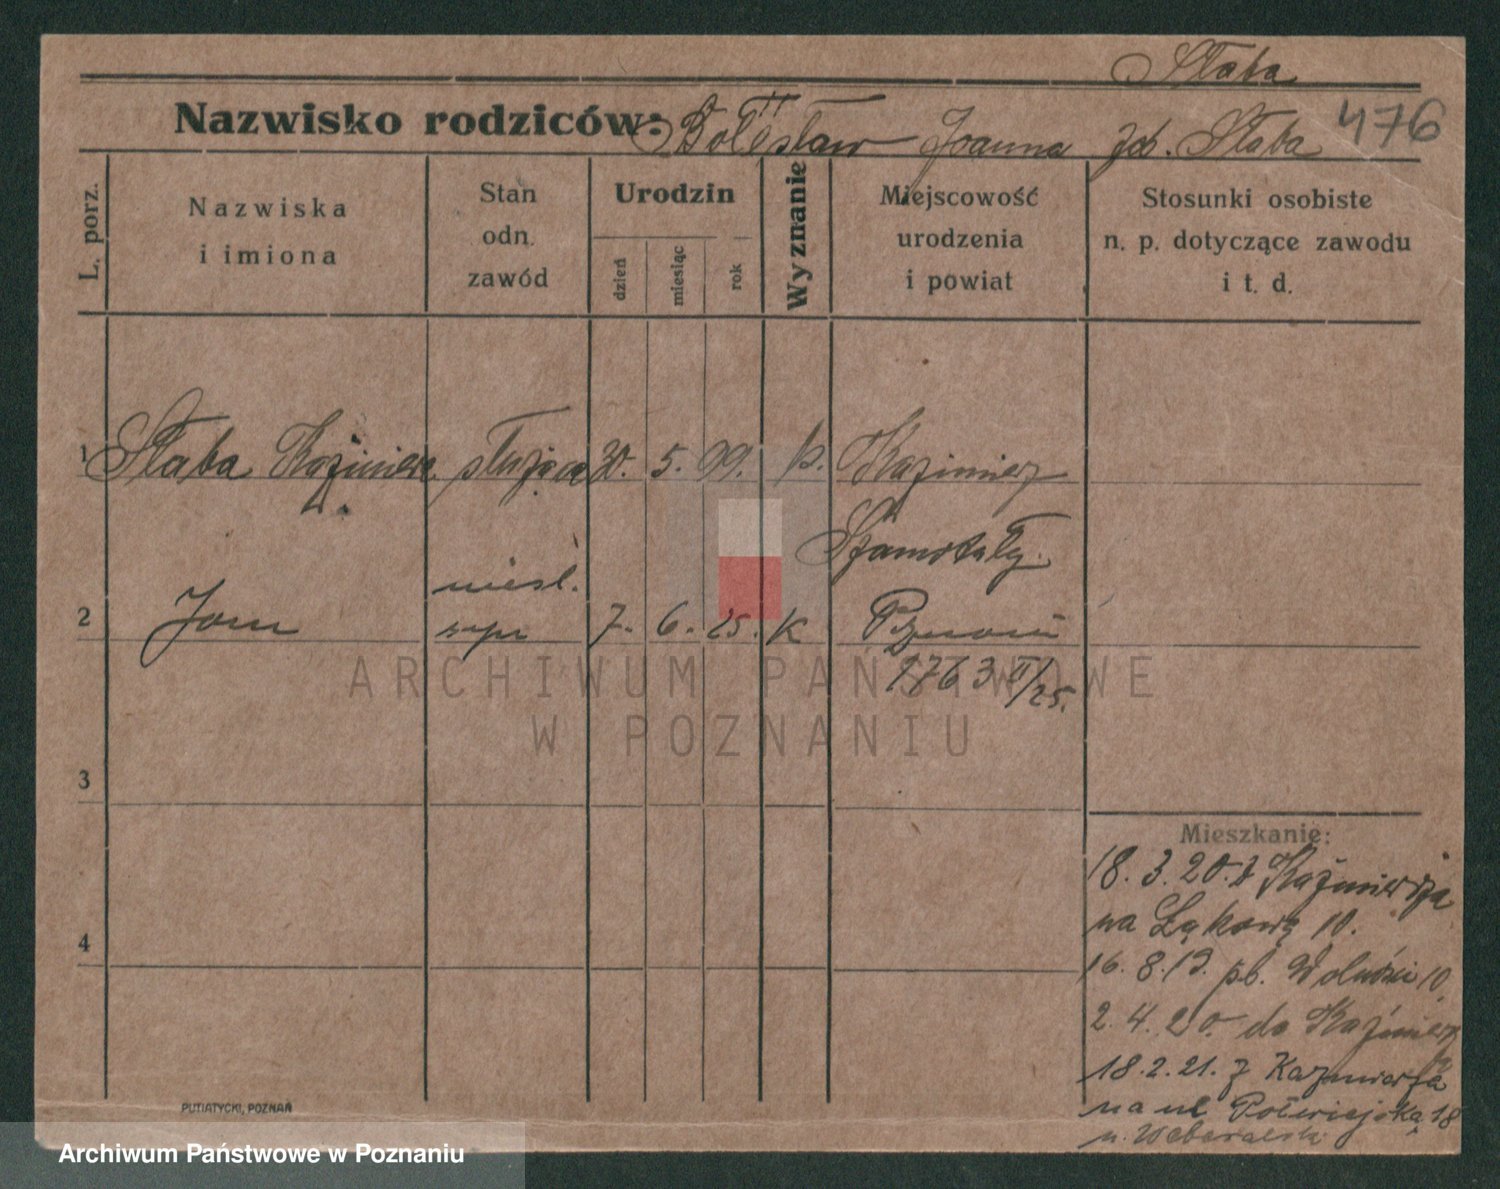 Słaba
Nazwisko rodziców: Bolesław Joanna zd. Słaba 476
L. porz.
Nazwiska
i imiona
Stan
odn.
zawód
Urodzin
dzień
miesiąc
rok
Wyznanie
Miejscowość
urodzenia
i powiat
Stosunki osobiste
n. p. dotyczące zawodu
i t. d.
1 Słaba Kaźmiera służąca 30. 5. 99. k. Kazimierz
Szamotuły
nieśl.
2 Jan syn 7. 6. 25. K Poznań
1763 II/25.
ARCHIWUM PAŃSTWOWE
W POZNANIU
3
4
Mieszkanie:
18. 3. 20. z Kaźmierza
na Łąkową 10.
16. 8. 19. pl. Wolności 10.
2. 4. 20. do Kaźmierza
18. 2. 21. z Kazmierza
na ul Półwiejską 18
u.
PUTIATYCKI, POZNAŃ
Archiwum Państwowe w Poznaniu